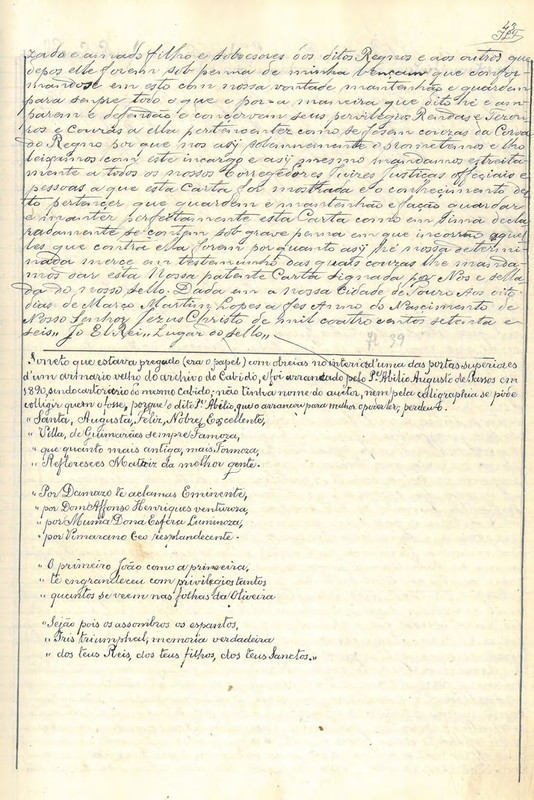 zado e amado filho e sobcesores dos ditos Regnos e aos outros que
depos elle forem sob penna de minha bençam que confor-
mandose em esto com nossa vontade mantenhão e guardem
para senpre todo o que e por a maneira que dito hé e am-
parem e defendão e concervam seus pervilegios Rendas e Foron-
ros e Couzas a ella pertencentes como se fosem couzas da Coroa
do Regno por que nos asy solennemente o prometemos e lho
leixamos com este incargo e asy mesmo mandamos estreita-
mente a todos os nossos Corregedores Juizes justiças offeciaes e
pessoas a que esta Carta for mostrada e o conheçimento de-
lla pertençer que guardem e mantenhão e fação guardar
e manter perfeitamente esta Carta como em sima decla-
radamente se contem sob grave penna em que incorrão aquel-
les que contra ella forem por quanto asy hé nossa detremi-
nada merce em testemunho das quais couzas lhe manda-
mos dar esta Nossa patente Carta signada por Nos e sella-
da do nosso sello. Dada em a nossa Cidade de Touro Aos vito
dias de Março Martim Lopes a fes Anno do Nascimento de
Nosso Senhor Jezus Christo de mil coatro centos setenta e
seis,, Jo ElRei,, Lugar do sello,,
fl. 39
Soneto que estava pregado (era o papel) com obreias no interior d'uma das portas superiores
d'um armario velho do archivo do Cabido, e foi arrancado pelo Pe. Abilio Augusto de Passos em
1890, sendo cartorario do mesmo cabido; não tinha nome do auctor, nem pela calligraphia se pôde
colligir quem o fosse, porque o dito Pe. Abilio, que o arrancou para melhor o poder ler, perdeu-o.
"Santa, Augusta, Feliz, Nobre, Excellente,
" Villa, de Guimarães sempre Famoza,
" que quanto mais antiga, mais Formoza,
" Refloresces Matriz da melhor gente.
" Por Damazo te aclamas Eminente,
" por Dom Affonso Henriques venturoza,
" por Muma Dona Esfera Luminoza,
" por Vimarano Ceo resplandecente.
" O primeiro João como a primeira,
" te engrandeceu com privilegios tantos
" quantos se veem nas folhas da Oliveira
" Sejão pois os assombros os espantos,
" Iris triumphal, memoria verdadeira
" dos teus Reis, dos teus filhos, dos teus Sanctos."